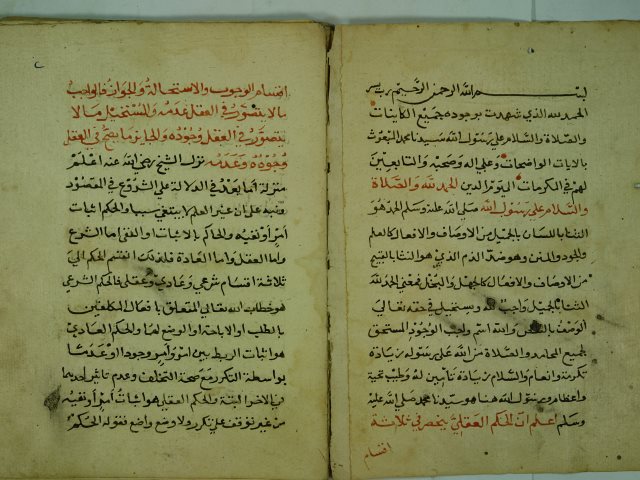 بسم الله الرحمن الرحيم رب يسر
الحمد لله الذي شهدت بوجوده جميع الكاينات
والصلاة والسلام على رسول الله سيدنا محمد المبعوث
بالايات الواضحات وعلى اله وصحبه والتابعين
لهم في الكرمات الحمد لله والصلاة
والسلام على رسول الله صلى الله عليه وسلم الحمد هو
الثنا باللسان بالجميل من الاوصاف والافعال كالعلم
والجود والمنن وهو ضد الذم الذي هو الثنا بالقبيح
من الاوصاف والافعال كالجهل والبخل فمعنى الحمد لله
الثنا بالجميل واجب لله ويستحيل في حقه تعالى
الوصف بالنقص والله اسم واجب الوجود المستحق
لجميع المحامد والصلاة من الله على رسوله زيادة
تكرمة وانعام والسلام زيادة تامين له وطيب تحية
واعظام ورسول الله هنا هو سيدنا محمد صلى الله عليه
وسلم اعلم ان الحكم العقلي ينحصر في ثلاثة
اقسام
اقسام الوجوب والاستحالة والجواز فالواجب
ما لا يتصور في العقل عدمه والمستحيل ما لا
يتصور في العقل وجوده والجايز ما يصح في العقل
وجوده وعدمه نزل الشيخ رضي الله عنه اعلم
منزلة اما بعد في الدلالة على الشروع في المقصود
ونبه على ان غير العلم لا ينبغي سببا والحكم اثبات
امر او نفيه والحاكم بالاثبات او النفي اما الشرع
واما العقل واما العادة فلذلك انقسم الحكم الى
ثلاثة اقسام شرعي وعادي وعقلي فالحكم الشرعي
هو خطاب الله تعالى المتعلق بافعال المكلفين
بالطلب او الاباحة او الوضع لهما والحكم العادي
هو اثبات الربط بين امر وامر وجودا او عدما
بواسطة التكرر مع صحة التخلف وعدم تاثير احدهما
في الاخر البتة والحكم العقلي هو اثبات امر او نفيه
من غير توقف على تكرر ولا وضع واضع فقوله الحكم